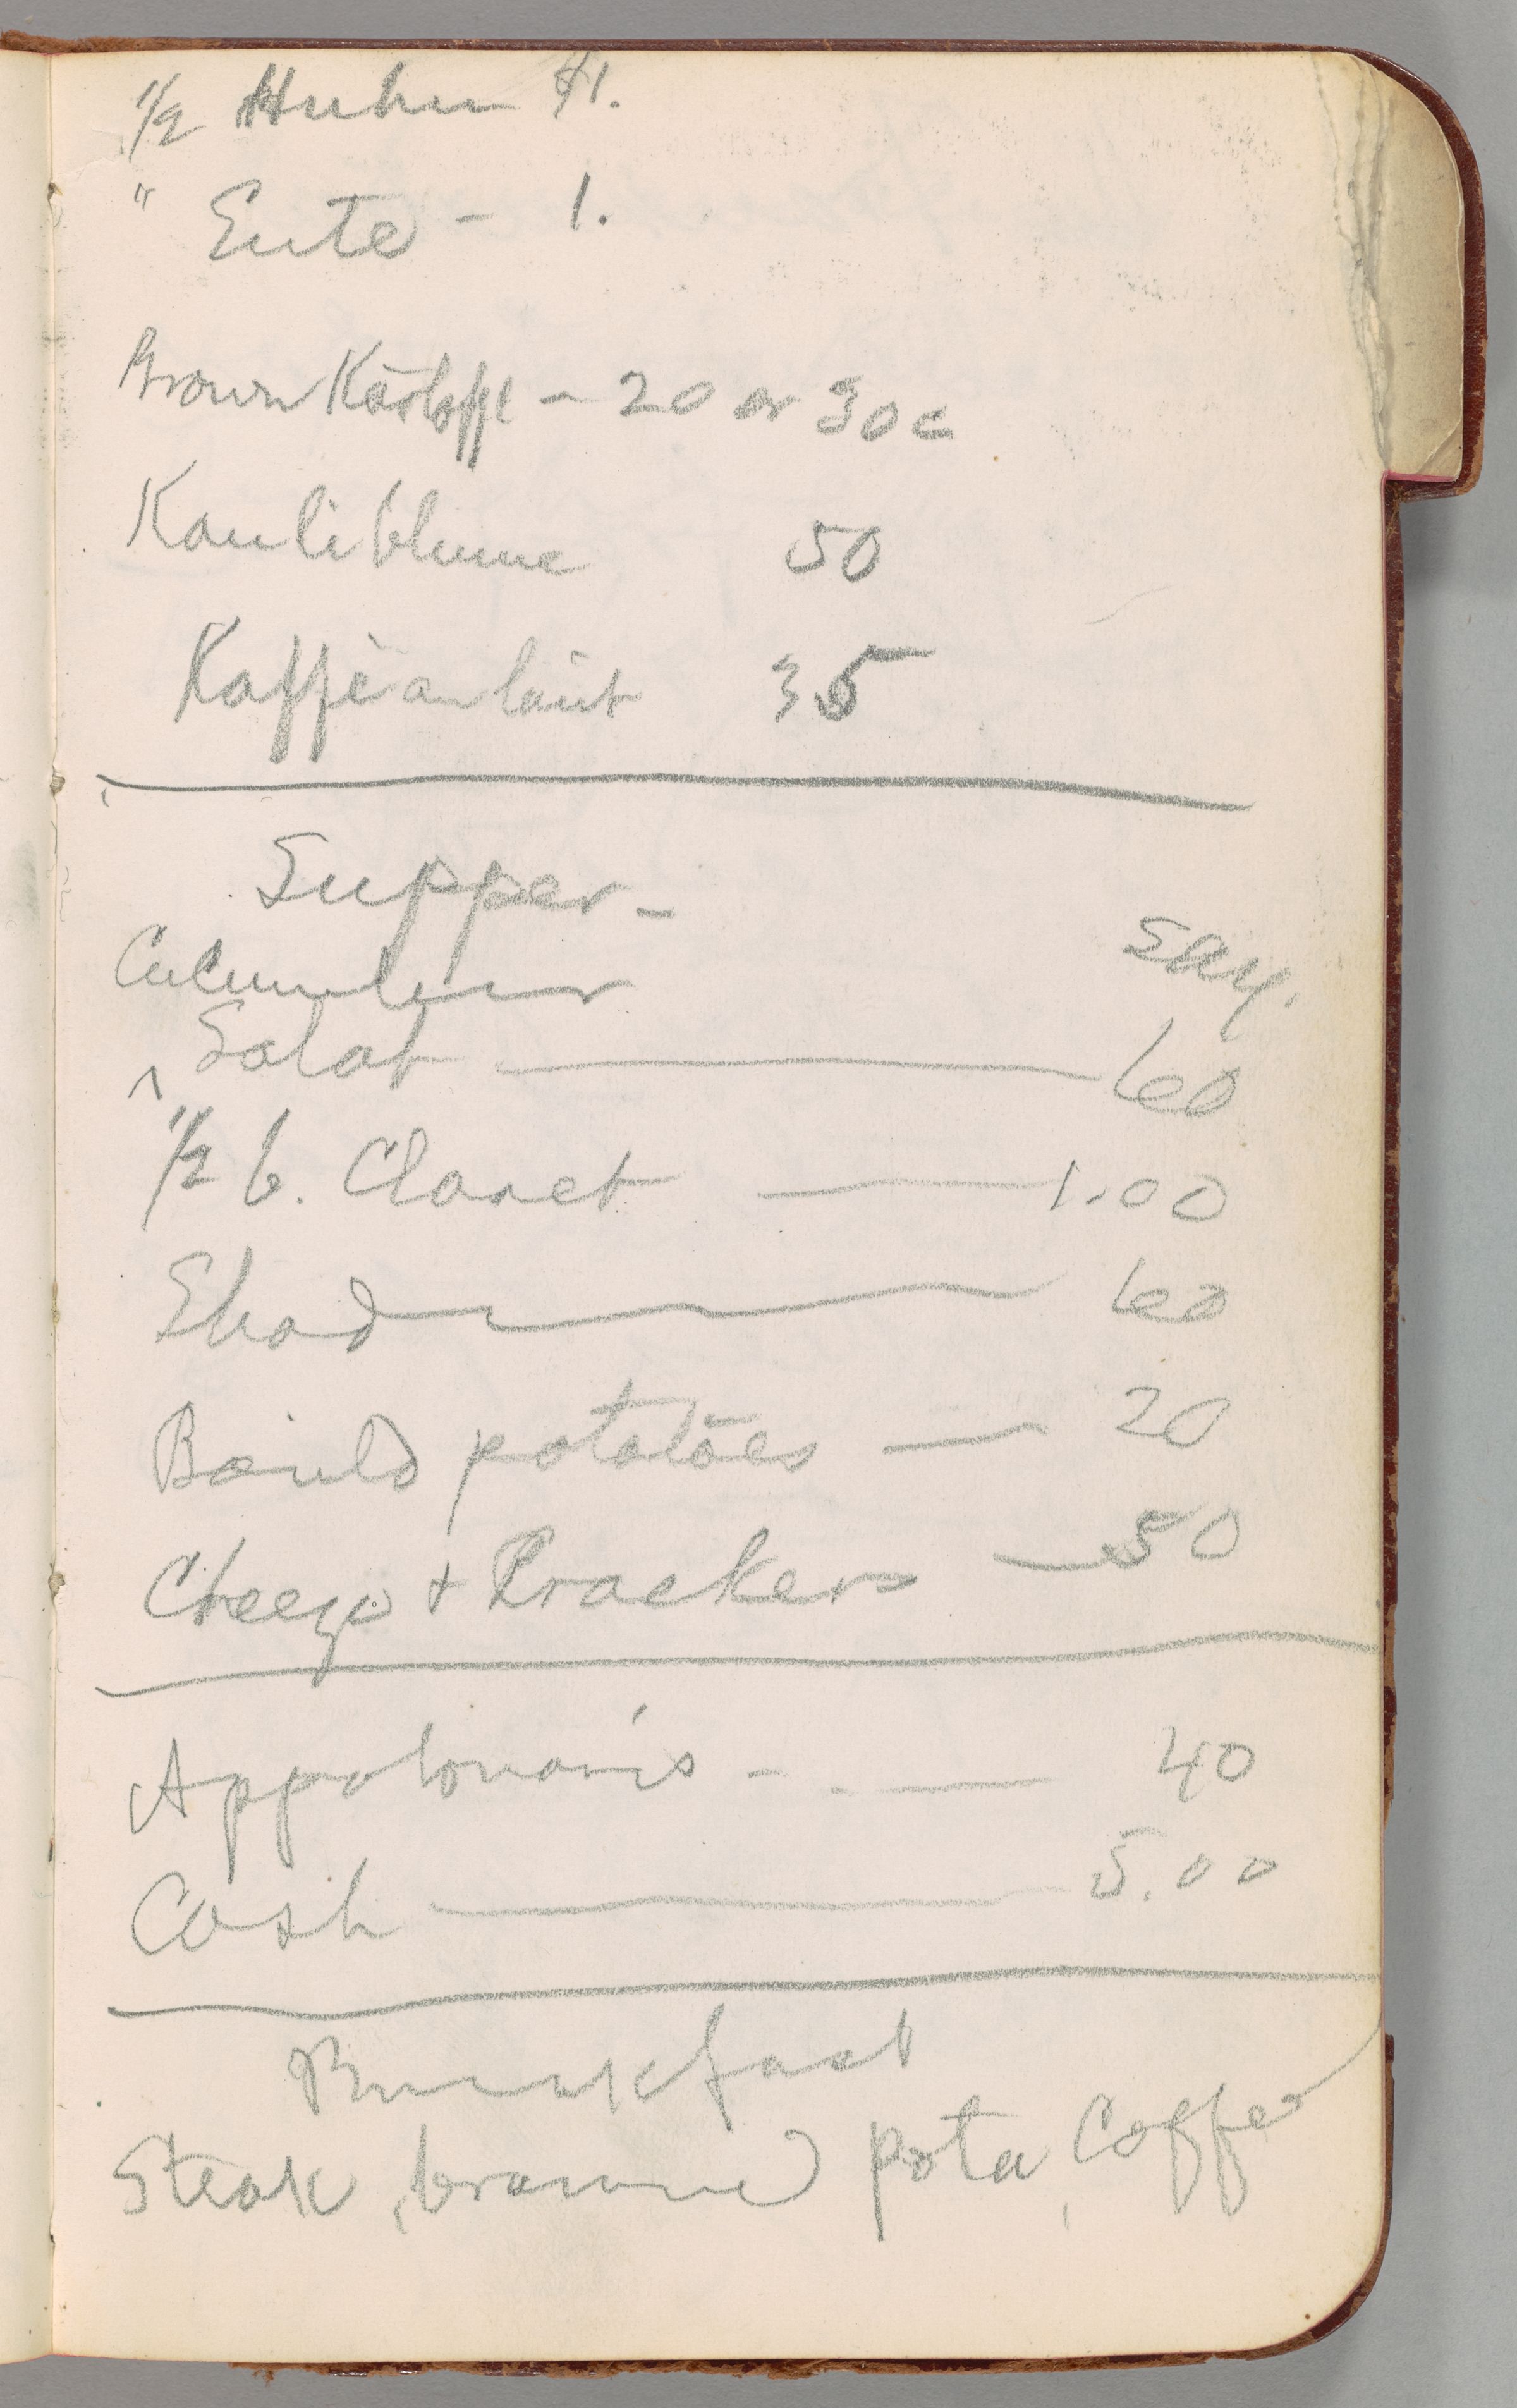 1/2 Huhn $1.
" Ente - 1.
Brown Kärtoffl - 20 or 30c
Kauliblume 50
Kaffee an lait 35
Supper -
Cucumber say.
^ Salat 60
1/2 b. Claret 1.00
Shad 60
Boiuld potatoes 20
Cheeze + Krackers 50
Appolonaris - 40
Cash 5.00
Breakfast
Steak, browned pota, Coffee